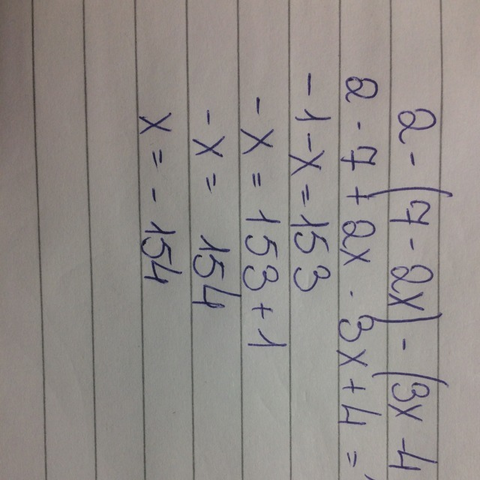 2 - (7 - 2x) - (3x - 4
2 - 7 + 2x - 3x + 4 =
- 1 - x = 153
- x = 153 + 1
- x = 154
x = - 154